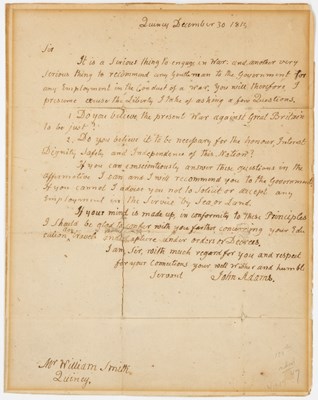 Quincy December 30 1812
Sir
It is a Serious thing to engage in War. and another very
Serious thing to recommend any Gentleman to the Government for
any Employment in the Conduct of a War. You will therefore, I
presume excuse the Liberty I take of asking a few Questions.
1. Do you believe the present War against Great Britain
to be just?
2. Do you believe it to be necessary for the honour, Interest
Dignity Safety and Independence of this Nation?
If you can conscientiously answer these questions in the
affirmative I can and I will recommend you to the Government
If you cannot I advise you not to Solicit or accept any
Employment in the Service by Sea or Land.
If your mind is made up, in conformity to these Principles
I should be glad to confer with you farther concerning your Edu
cation, Travels and Capture under orders or Decrees.
I am, Sir, with much regard for you and respect
for your Connections your well Wisher and humble
Servant John Adams.
Mr William Smith.
Quincy.